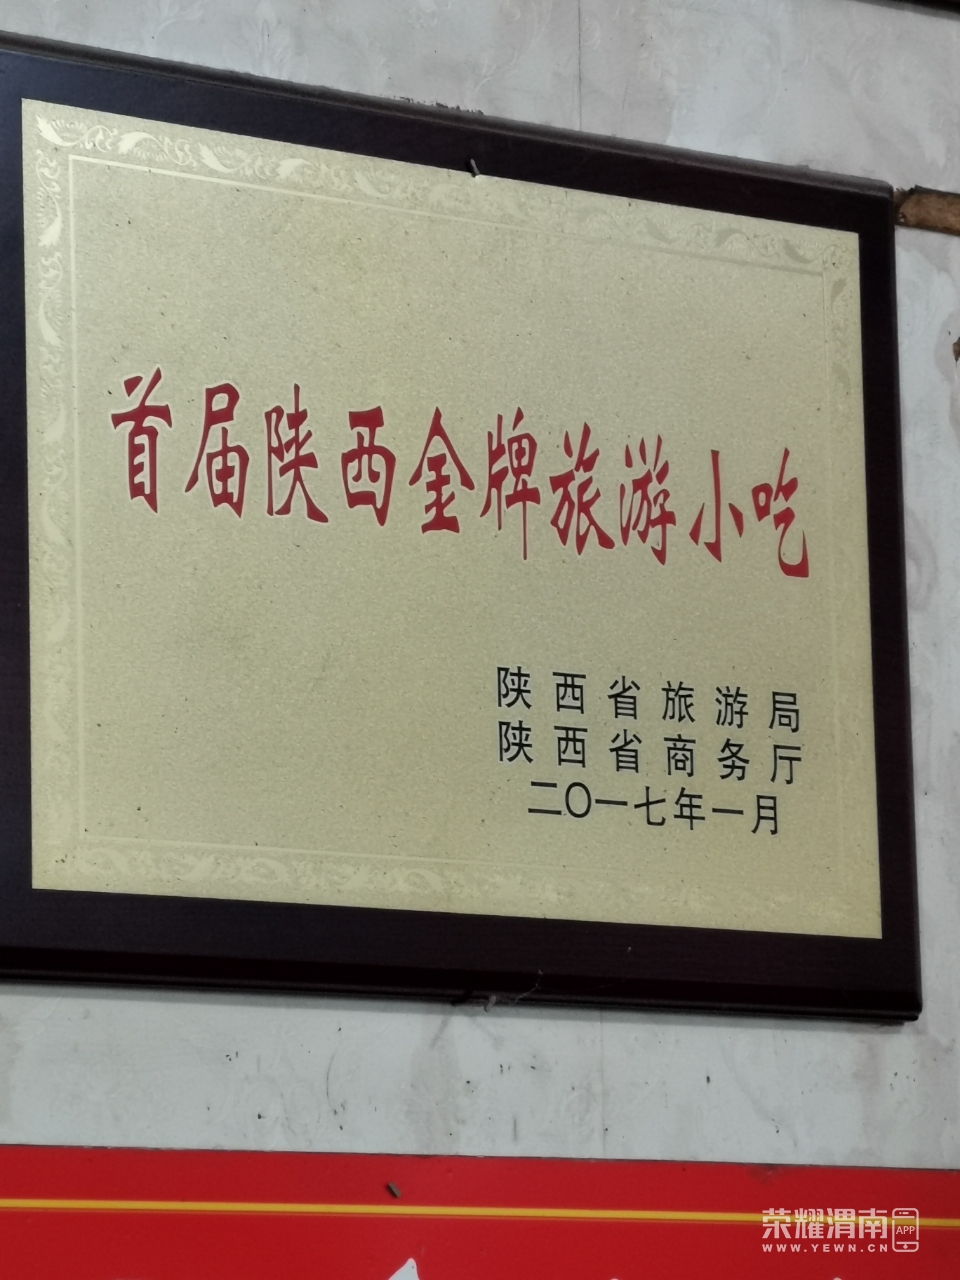 首届陕西金牌旅游小吃
陕西省旅游局
陕西省商务厅
二〇一七年一月
荣耀渭南 APP
WWW.YEWN.CN